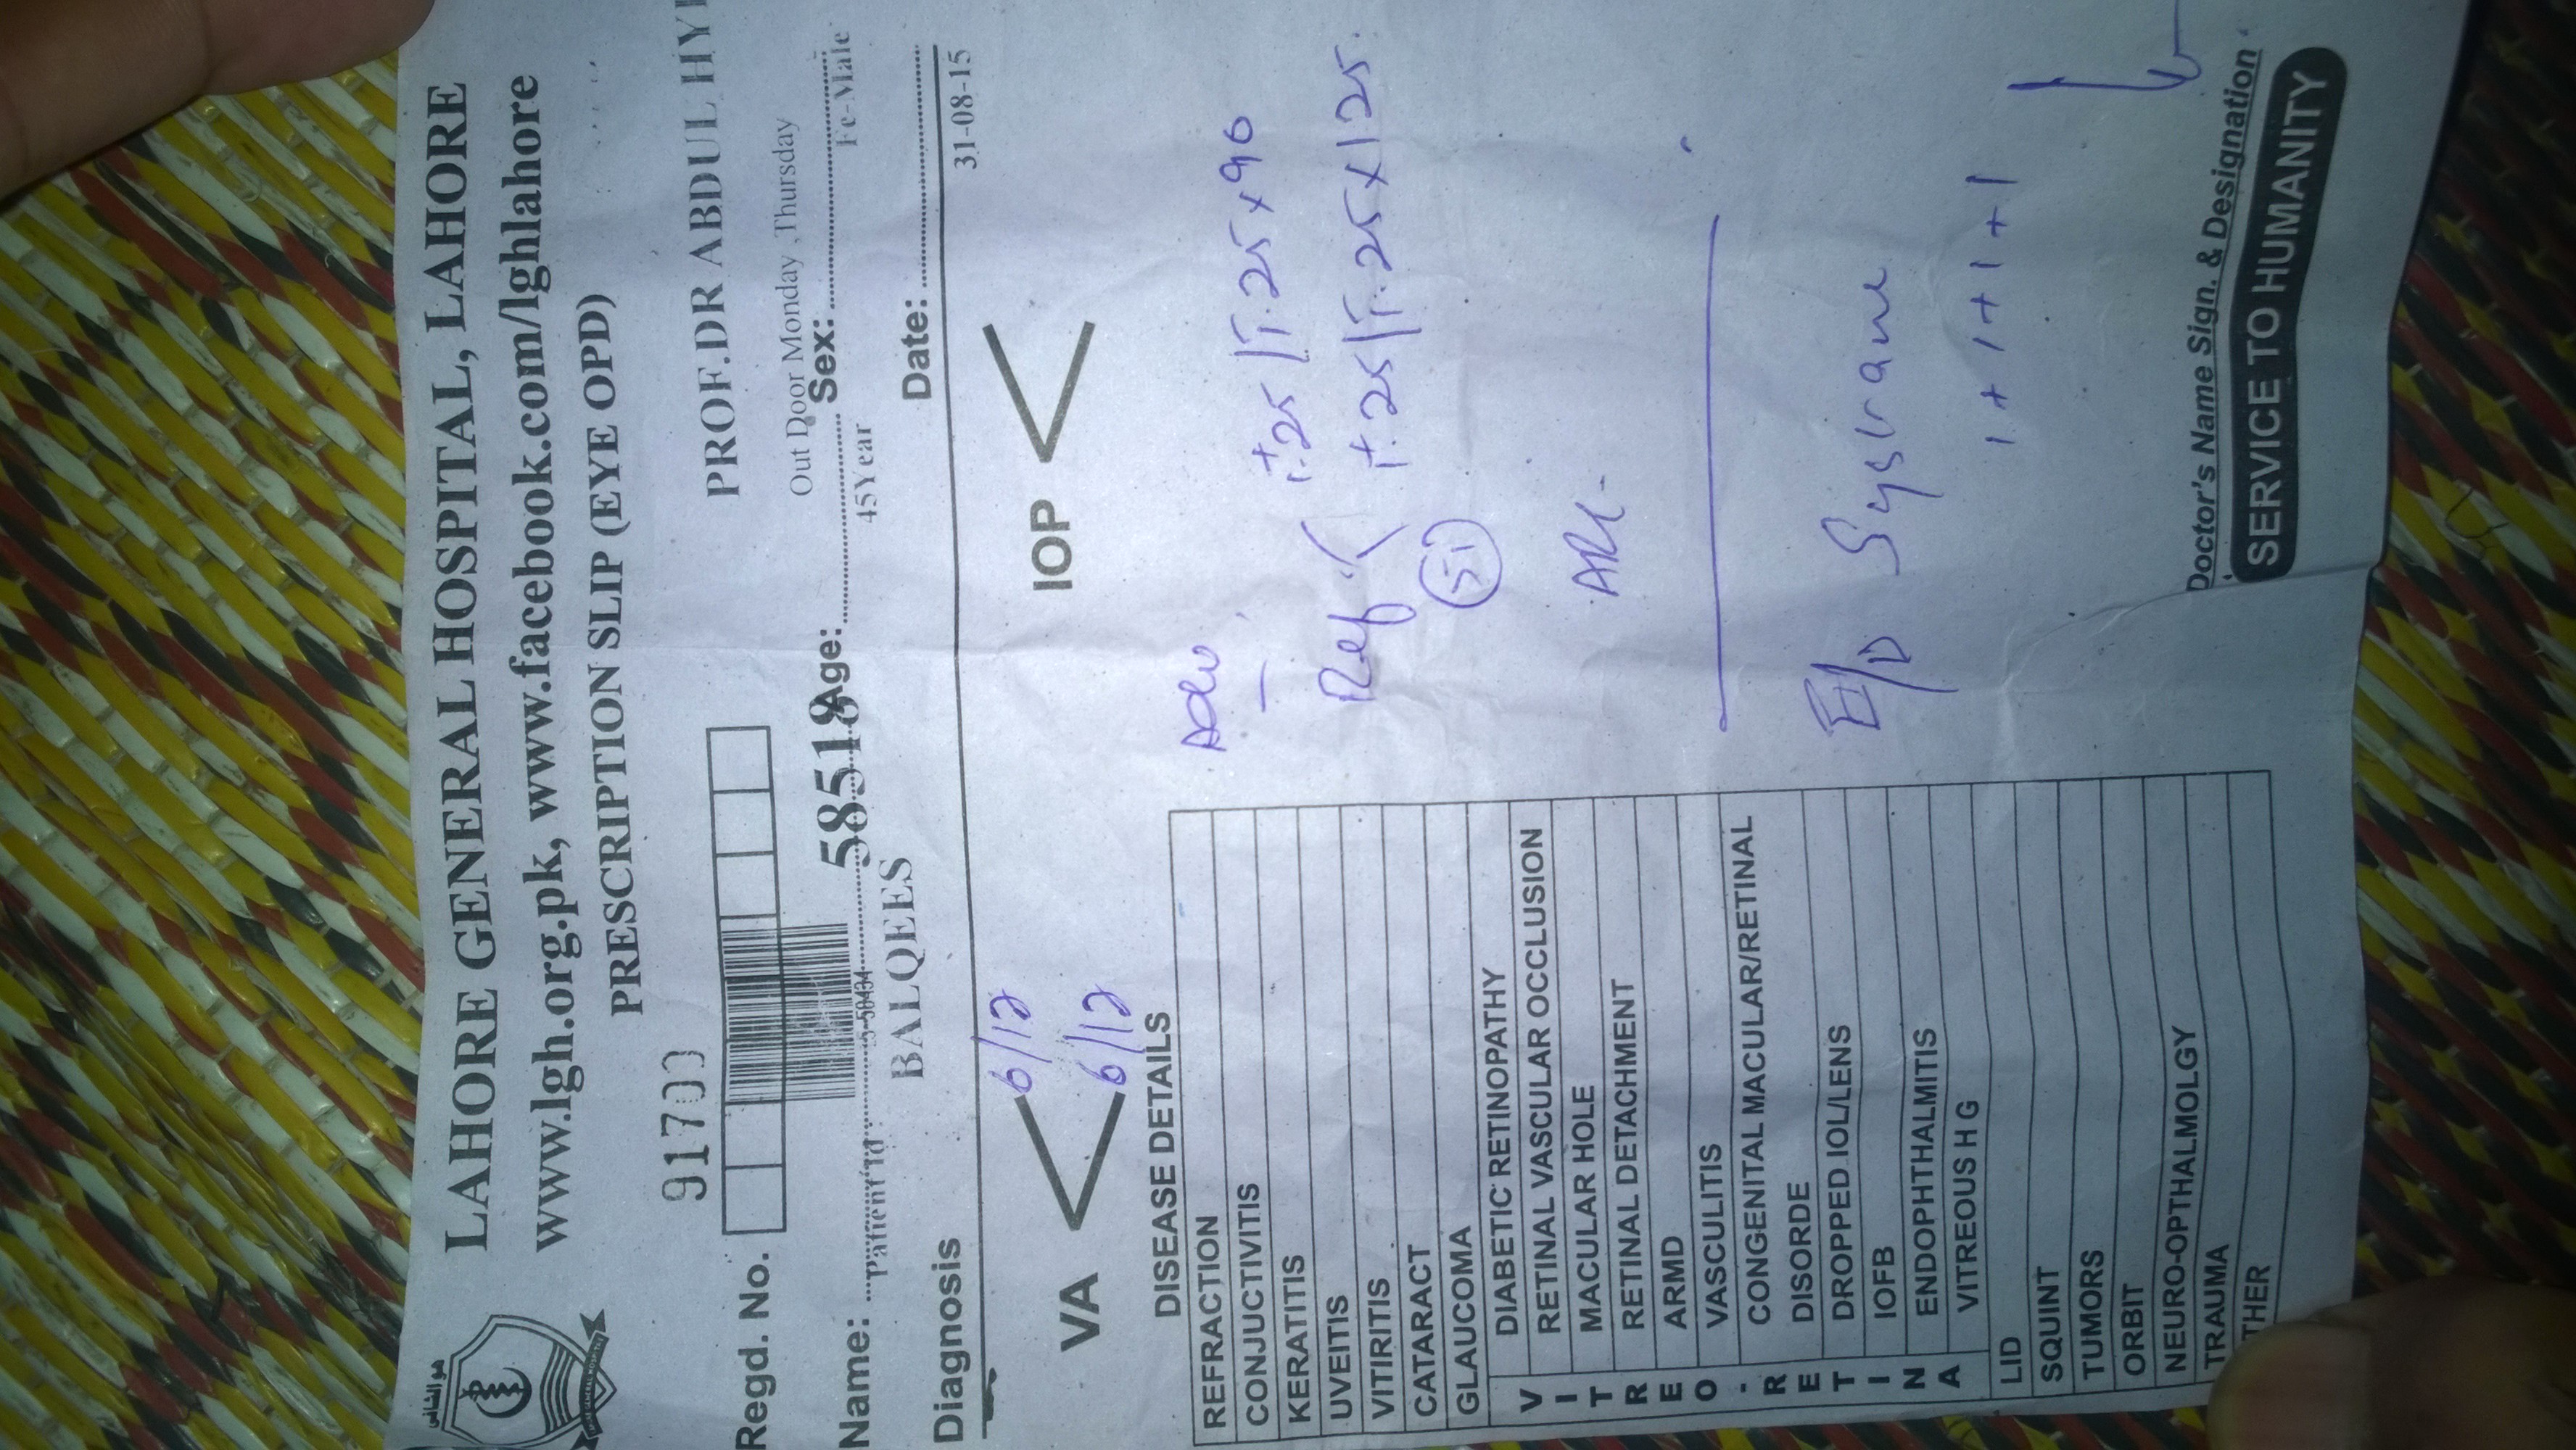 هوالشافی
LAHORE GENERAL HOSPITAL, LAHORE
www.lgh.org.pk, www.facebook.com/lghlahore
PRESCRIPTION SLIP (EYE OPD)
91700
PROF.DR ABDUL HY
Regd. No.
Out Door Monday ,Thursday
58518
Name: Age: Sex:
Patient Id 5-50434 45Year Fe-Male
BALQEES
Diagnosis Date:
31-08-15
VA < 6/12 IOP <
6/12
DISEASE DETAILS
REFRACTION
CONJUCTIVITIS
KERATITIS
UVEITIS
VITIRITIS
CATARACT
GLAUCOMA
VITREO-RETINA
DIABETIC RETINOPATHY
RETINAL VASCULAR OCCLUSION
MACULAR HOLE
RETINAL DETACHMENT
ARMD
VASCULITIS
CONGENITAL MACULAR/RETINAL
DISORDE
DROPPED IOL/LENS
IOFB
ENDOPHTHALMITIS
VITREOUS H G
LID
SQUINT
TUMORS
ORBIT
NEURO-OPTHALMOLGY
TRAUMA
THER
+.25 / .25 x 90
Ref < +.25 / .25 x 125
E/D Systane
1+1+1+1
Doctor's Name Sign. & Designation
SERVICE TO HUMANITY